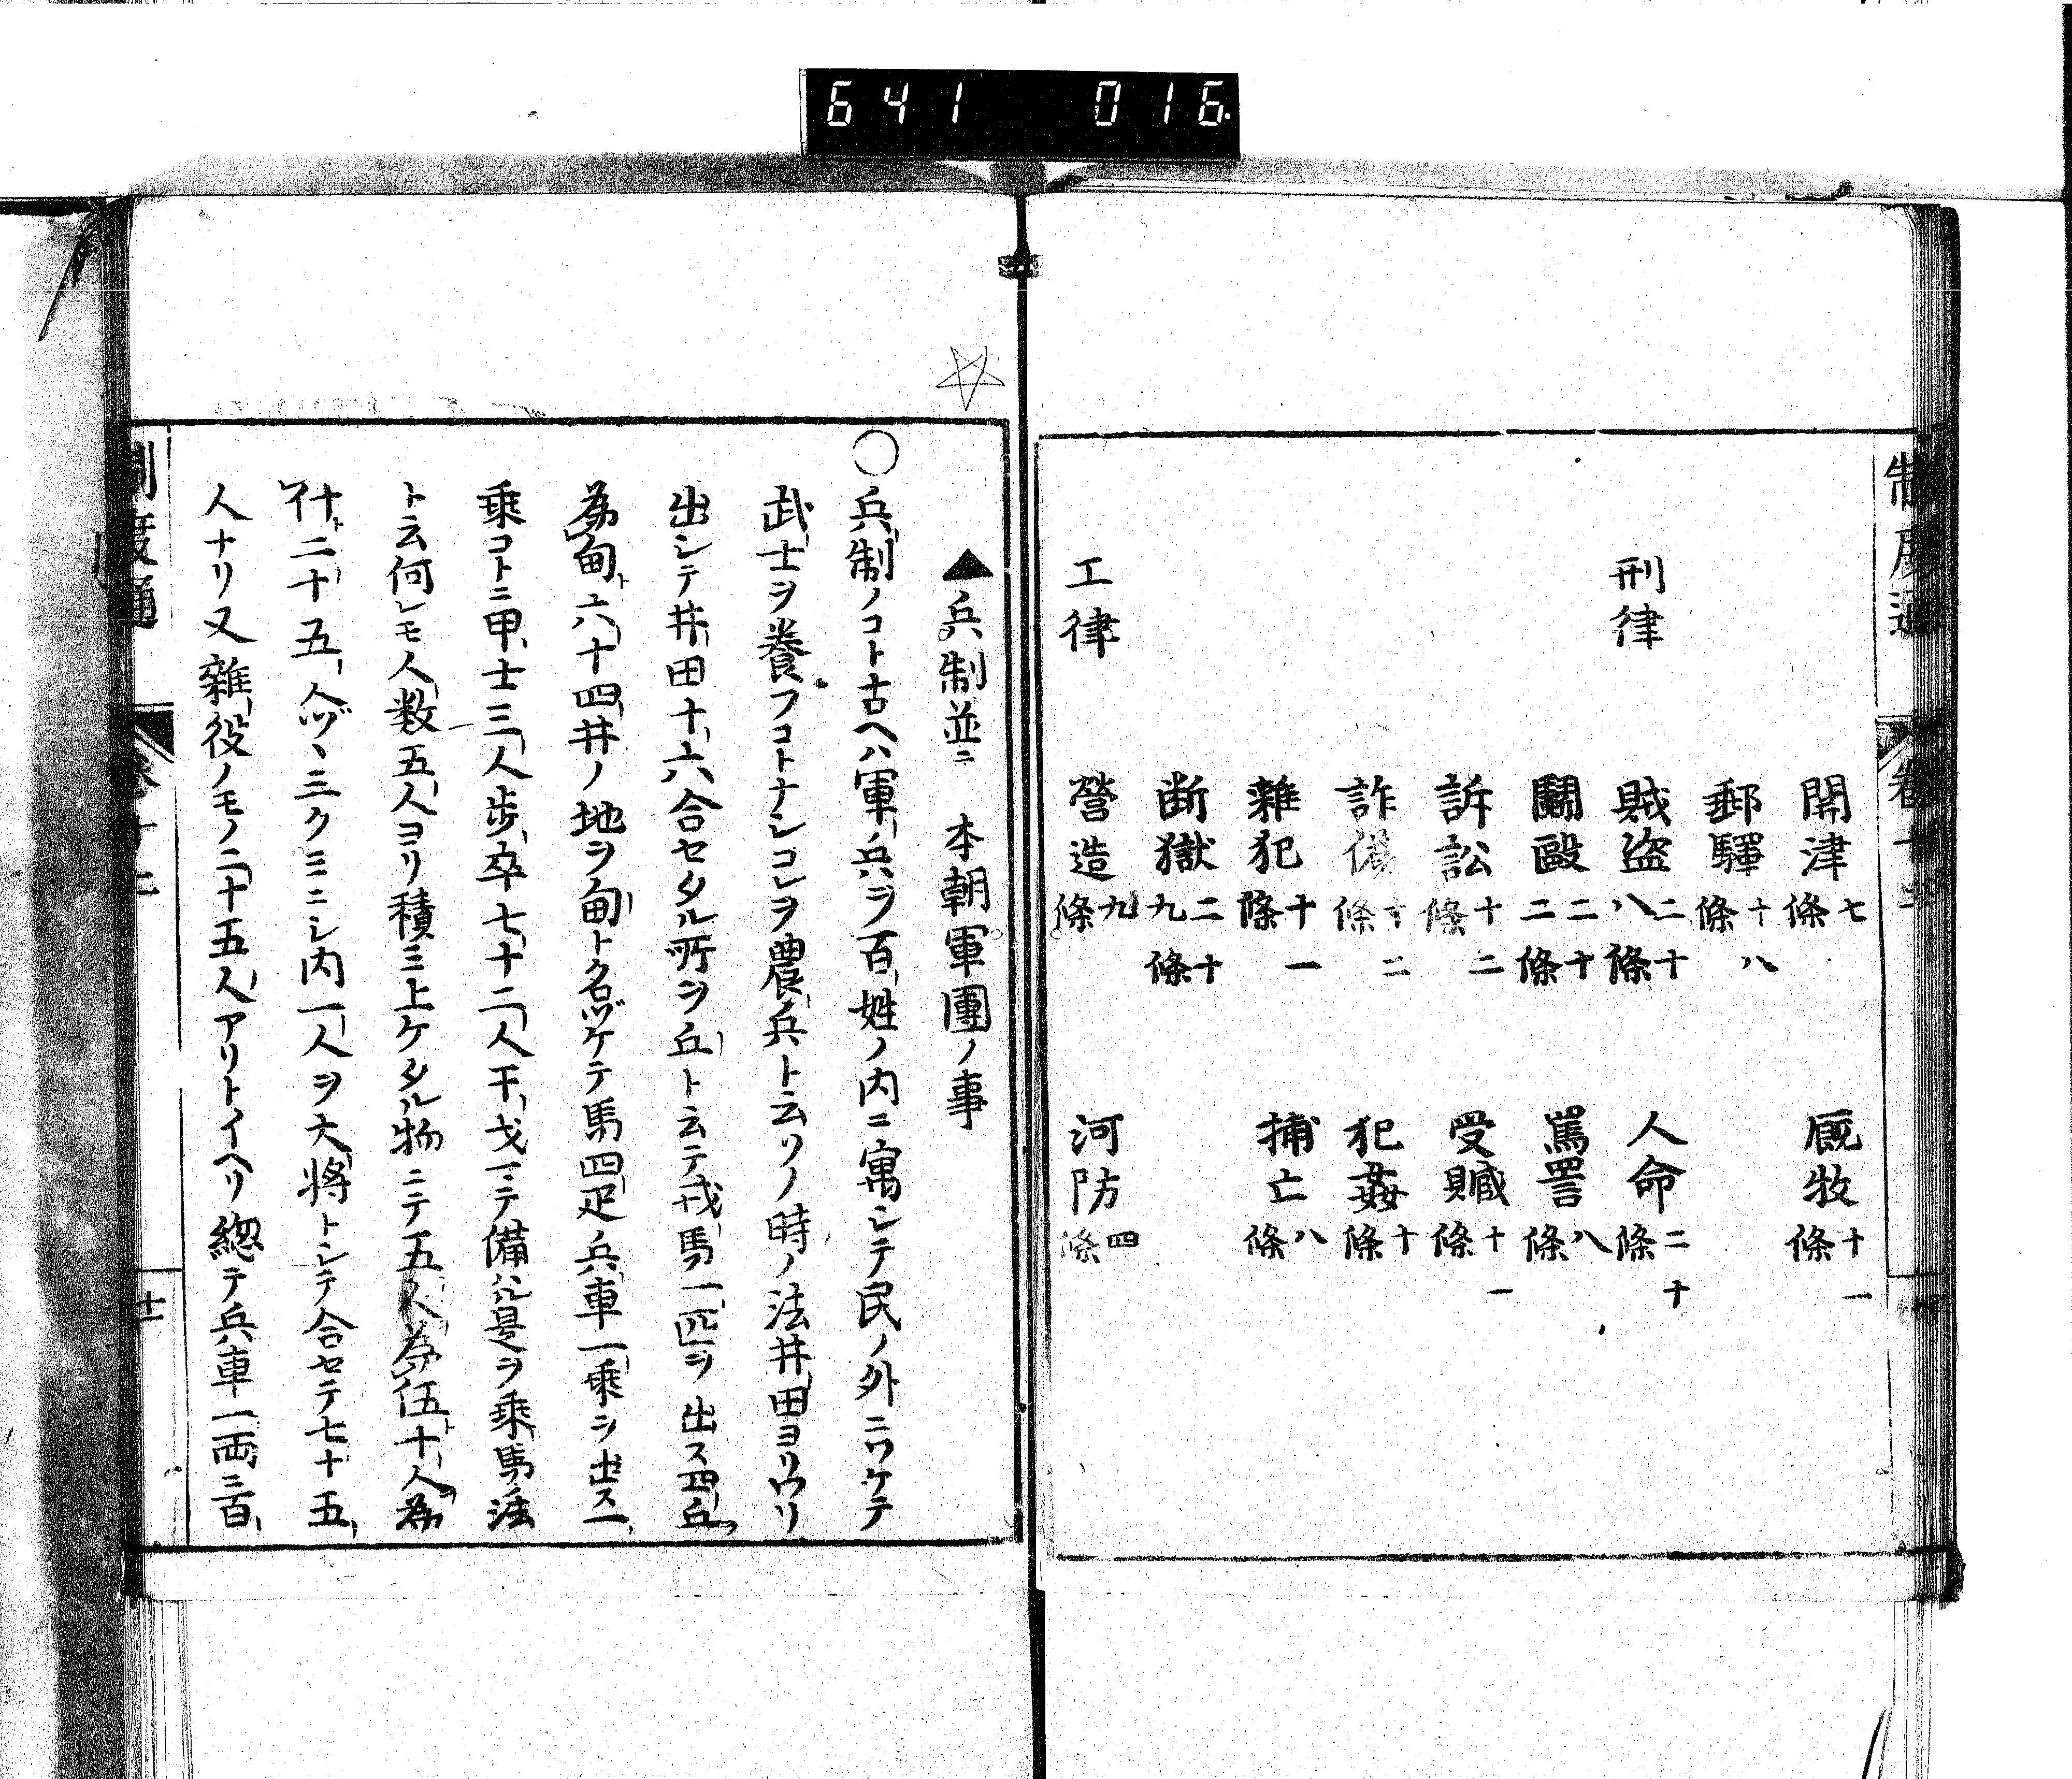 641 016
制度通 卷十二
關津七條 厩牧十一條
郵驛十八條
刑律 賊盜二十八條 人命二十條
鬪毆二十二條 罵詈八條
訴訟十二條 受贓十一條
詐僞十二條 犯姦十條
雜犯十一條 捕亡八條
断獄二十九條
工律 營造九條 河防四條
▲兵制並ニ 本朝軍團ノ事
〇兵制ノコト古ヘハ軍兵ヲ百姓ノ内ニ寓シテ民ノ外ニワケテ
武士ヲ養フコトナシコレヲ農兵ト云ソノ時ノ法井田ヨリワリ
出シテ井田十六合セタル所ヲ丘ト云テ戎馬一匹ヲ出ス四丘
為甸ト六十四井ノ地ヲ甸ト名ヅケテ馬四疋兵車一乘ヲ出ス一
乘コトニ甲士三人歩卒七十二人干戈マテ備ハル是ヲ乘馬法
ト云何レモ人数五人ヨリ積ミ上ケタル物ニテ五人為伍ト十人為
什ト二十五人ヅヽ三クミニシ内一人ヲ大將トシテ合セテ七十五
人ナリ又雜役ノモノ二十五人アリトイヘリ總テ兵車一両ニ百
制度通 卷十二 十一